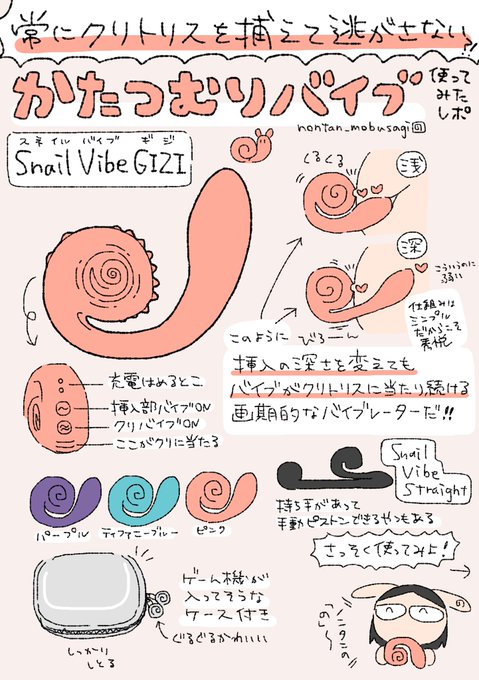 常にクリトリスを捕えて逃がさない?!
かたつむりバイブ
使って
みた
レポ
nontan_mobusagi
スネイル バイブ ギジ
Snail Vibe GIZI
くるくる
浅
深
こういうのに
弱い
びろーん
仕組みは
シンプル
だからこそ
秀悦
このように
挿入の深さを変えても
バイブがクリトリスに当たり続ける
画期的なバイブレーターだ!!
充電はめるとこ
挿入部バイブON
クリバイブON
ここがクリに当たる
Snail
Vibe
Straight
持ち手があって
手動ピストンできるやつもある
パープル
ティファニーブルー
ピンク
さっそく使ってみよ!
ゲーム機が
入ってそうな
ケース付き
ぐるぐるかわいい
しっかり
しとる
ノンタンの
「の」〜
の